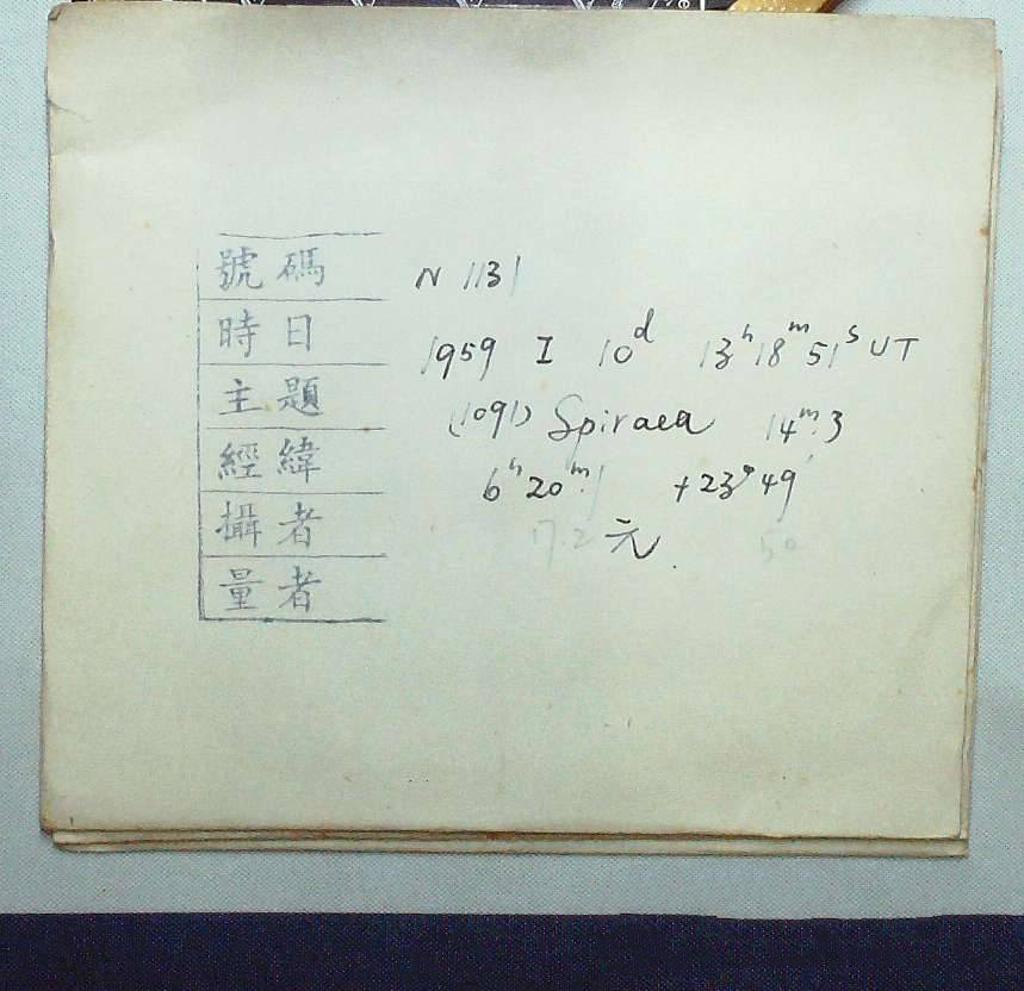 號碼 N 1131
時日 1959 I 10ᵈ 13ʰ18ᵐ51ˢ UT
主題 (1091) Spiraea 14ᵐ.3
經緯 6ʰ20ᵐ.1 +23°49′
攝者 17.2 元 50
量者